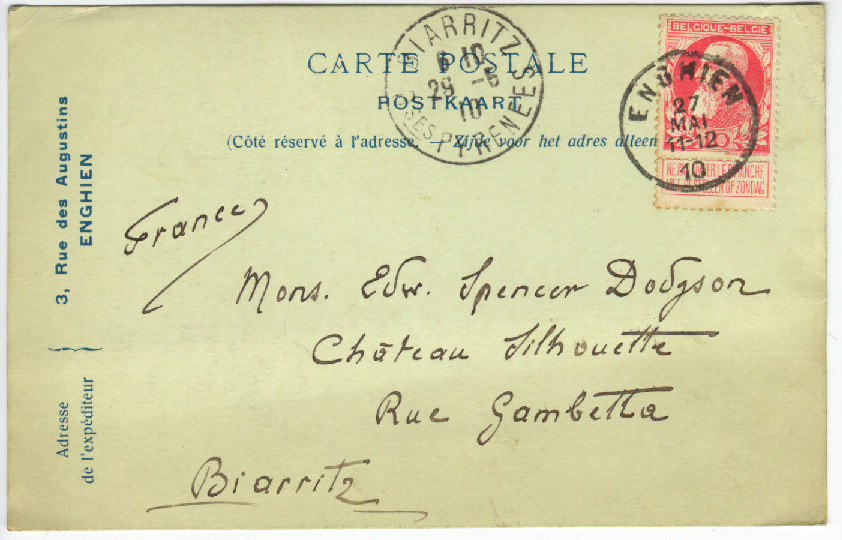 BELGIQUE-BELGIË
CARTE POSTALE
POSTKAART
(Côté réservé à l'adresse. — Zijde voor het adres alleen
BIARRITZ
29 -5
10
PYRENEES
ENGHIEN
27
MAI
11-12
10
NE PAS LIVRER LE DIMANCHE
NIET BESTELLEN OP ZONDAG
3, Rue des Augustins
ENGHIEN
Adresse
de l'expéditeur
France
Mons. Edw. Spencer Dodgson
Château Silhouette
Rue Gambetta
Biarritz